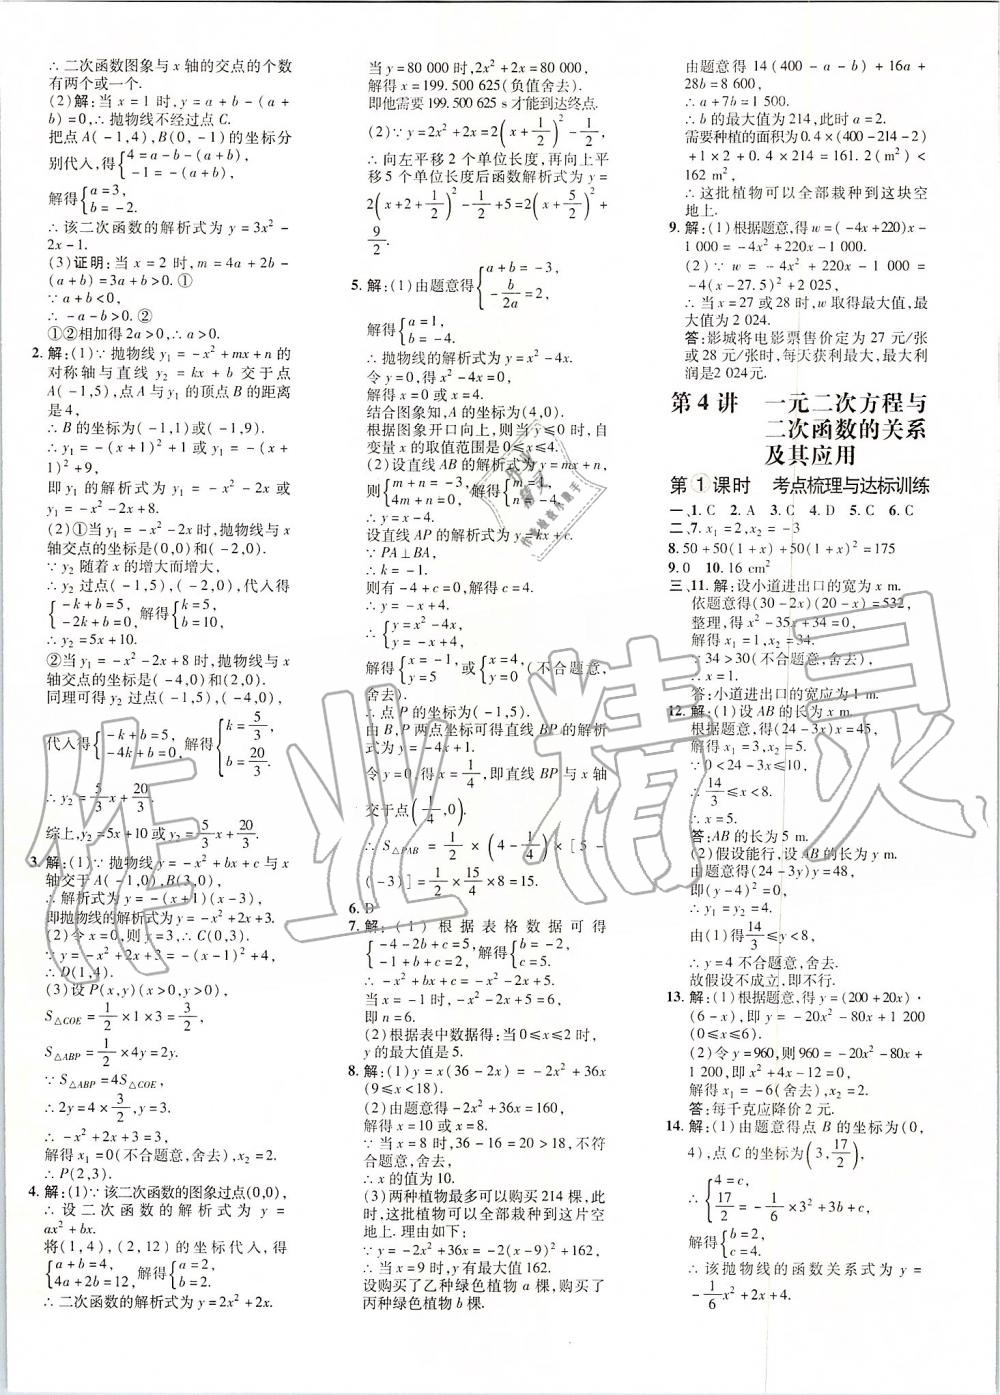 ∴二次函数图象与x轴的交点的个数
有两个或一个.
(2)解:当x=1时,y=a+b-(a+
b)=0,∴抛物线不经过点C.
把点A(-1,4),B(0,-1)的坐标分
别代入,得{4=a-b-(a+b), -1=-(a+b),
解得{a=3, b=-2.
∴该二次函数的解析式为y=3x²-
2x-1.
(3)证明:当x=2时,m=4a+2b-
(a+b)=3a+b>0.①
∵a+b<0,
∴-a-b>0.②
①②相加得2a>0,∴a>0.
2.解:(1)∵抛物线y₁=-x²+mx+n的
对称轴与直线y₂=kx+b交于点
A(-1,5),点A与y₁的顶点B的距离
是4,
∴B的坐标为(-1,1)或(-1,9).
∴y₁=-(x+1)²+1或y₁=
-(x+1)²+9,
即y₁=-x²-2x或y₁=
-x²-2x+8.
(2)①当y₁=-x²-2x时,抛物线与x
轴交点的坐标是(0,0)和(-2,0).
∵y₂随着x的增大而增大,
∴y₂过点(-1,5),(-2,0),代入得
{-k+b=5, -2k+b=0,解得{k=5, b=10,
∴y₂=5x+10.
②当y₁=-x²-2x+8时,抛物线与x
轴交点的坐标是(-4,0)和(2,0).
同理可得y₂过点(-1,5),(-4,0),
代入得{-k+b=5, -4k+b=0,解得{k=5/3, b=20/3.
∴y₂=5/3x+20/3.
综上,y₂=5x+10或y₂=5/3x+20/3.
3.解:(1)∵抛物线y=-x²+bx+c与x
轴交于A(-1,0),B(3,0),
∴解析式为y=-(x+1)(x-3),
即抛物线的解析式为y=-x²+2x+3.
(2)令x=0,则y=3,∴C(0,3).
∵y=-x²+2x+3=-(x-1)²+4,
∴D(1,4).
(3)设P(x,y)(x>0,y>0),
S△COE=1/2×1×3=3/2,
S△ABP=1/2×4y=2y.
∵S△ABP=4S△COE,
∴2y=4×3/2,∴y=3,
∴-x²+2x+3=3,
解得x₁=0(不合题意,舍去),x₂=2.
∴P(2,3).
4.解:(1)∵该二次函数的图象过点(0,0),
∴设二次函数的解析式为y=
ax²+bx.
将(1,4),(2,12)的坐标代入,得
{a+b=4, 4a+2b=12,解得{a=2, b=2.
∴二次函数的解析式为y=2x²+2x.
当y=80 000时,2x²+2x=80 000,
解得x=199.500 625(负值舍去).
即他需要199.500 625 s才能到达终点.
(2)∵y=2x²+2x=2(x+1/2)²-1/2,
∴向左平移2个单位长度,再向上平
移5个单位长度后函数解析式为y=
2(x+2+1/2)²-1/2+5=2(x+5/2)²+
9/2.
5.解:(1)由题意得{a+b=-3, -b/2a=2,
解得{a=1, b=-4.
∴抛物线的解析式为y=x²-4x.
令y=0,得x²-4x=0,
解得x=0或4.
结合图象知,A的坐标为(4,0).
根据图象开口向上,则当y≤0时,自
变量x的取值范围是0≤x≤4.
(2)设直线AB的解析式为y=mx+n,
则{m+n=-3, 4m+n=0,解得{m=1, n=-4,
∴y=x-4.
设直线AP的解析式为y=kx+c,
∵PA⊥BA,
∴k=-1.
则有-4+c=0,解得c=4.
∴y=-x+4.
∴{y=x²-4x, y=-x+4,
解得{x=-1, y=5或{x=4, y=0(不合题意,
舍去).
∴点P的坐标为(-1,5).
由B,P两点坐标可得直线BP的解析
式为y=-4x+1.
令y=0,得x=1/4,即直线BP与x轴
交于点(1/4,0).
∴S△PAB=1/2×(4-1/4)×[5-
(-3)]=1/2×15/4×8=15.
6.D
7.解:(1)根据表格数据可得
{-4-2b+c=5, -1+b+c=2,解得{b=-2, c=5.
∴-x²+bx+c=-x²-2x+5,
当x=-1时,-x²-2x+5=6,
即n=6.
(2)根据表中数据得:当0≤x≤2时,
y的最大值是5.
8.解:(1)y=x(36-2x)=-2x²+36x
(9≤x<18).
(2)由题意得-2x²+36x=160,
解得x=10或x=8.
∵当x=8时,36-16=20>18,不符
合题意,舍去,
∴x的值为10.
(3)两种植物最多可以购买214棵,此
时,这批植物可以全部栽种到这片空
地上.理由如下:
∵y=-2x²+36x=-2(x-9)²+162,
∴当x=9时,y有最大值162.
设购买了乙种绿色植物a棵,购买了
丙种绿色植物b棵.
由题意得14(400-a-b)+16a+
28b=8 600,
∴a+7b=1 500.
∴b的最大值为214,此时a=2.
需要种植的面积为0.4×(400-214-2)
+1×2+0.4×214=161.2(m²)<
162 m²,
∴这批植物可以全部栽种到这块空
地上.
9.解:(1)根据题意,得w=(-4x+220)x-
1 000=-4x²+220x-1 000.
(2)∵w=-4x²+220x-1 000=
-4(x-27.5)²+2 025,
∴当x=27或28时,w取得最大值,最
大值为2 024.
答:影城将电影票售价定为27元/张
或28元/张时,每天获利最大,最大利
润是2 024元.
第4讲 一元二次方程与
二次函数的关系
及其应用
第①课时 考点梳理与达标训练
一、1.C 2.A 3.C 4.D 5.C 6.C
二、7.x₁=2,x₂=-3
8.50+50(1+x)+50(1+x)²=175
9.0 10.16 cm²
三、11.解:设小道进出口的宽为x m.
依题意得(30-2x)(20-x)=532,
整理,得x²-35x+34=0.
解得x₁=1,x₂=34.
∵34>30(不合题意,舍去),
∴x=1.
答:小道进出口的宽应为1 m.
12.解:(1)设AB的长为x m.
根据题意,得(24-3x)x=45,
解得x₁=3,x₂=5.
∵0<24-3x≤10,
∴14/3≤x<8.
∴x=5.
答:AB的长为5 m.
(2)假设能行,设AB的长为y m.
由题意得(24-3y)y=48,
即(y-4)²=0.
∴y₁=y₂=4.
由(1)得14/3≤y<8,
∴y=4不合题意,舍去.
故假设不成立,即不行.
13.解:(1)根据题意,得y=(200+20x)·
(6-x),即y=-20x²-80x+1 200
(0≤x≤6).
(2)令y=960,则960=-20x²-80x+
1 200,即x²+4x-12=0,
解得x₁=-6(舍去),x₂=2.
答:每千克应降价2元.
14.解:(1)由题意得点B的坐标为(0,
4),点C的坐标为(3,17/2).
∴{4=c, 17/2=-1/6×3²+3b+c,
解得{b=2, c=4.
∴该抛物线的函数关系式为y=
-1/6x²+2x+4.
作业精灵